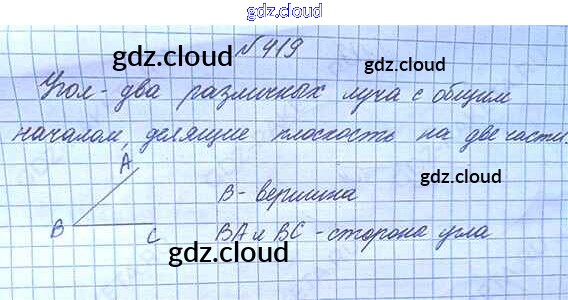 gdz.cloud
gdz.cloud
gdz.cloud
№419
gdz.cloud
Угол - два различных луча с общим
началом, делящие плоскость на две части.
gdz.cloud
gdz.cloud
A
B - вершина
gdz.cloud
B
C
BA и BC - сторона угла
gdz.cloud